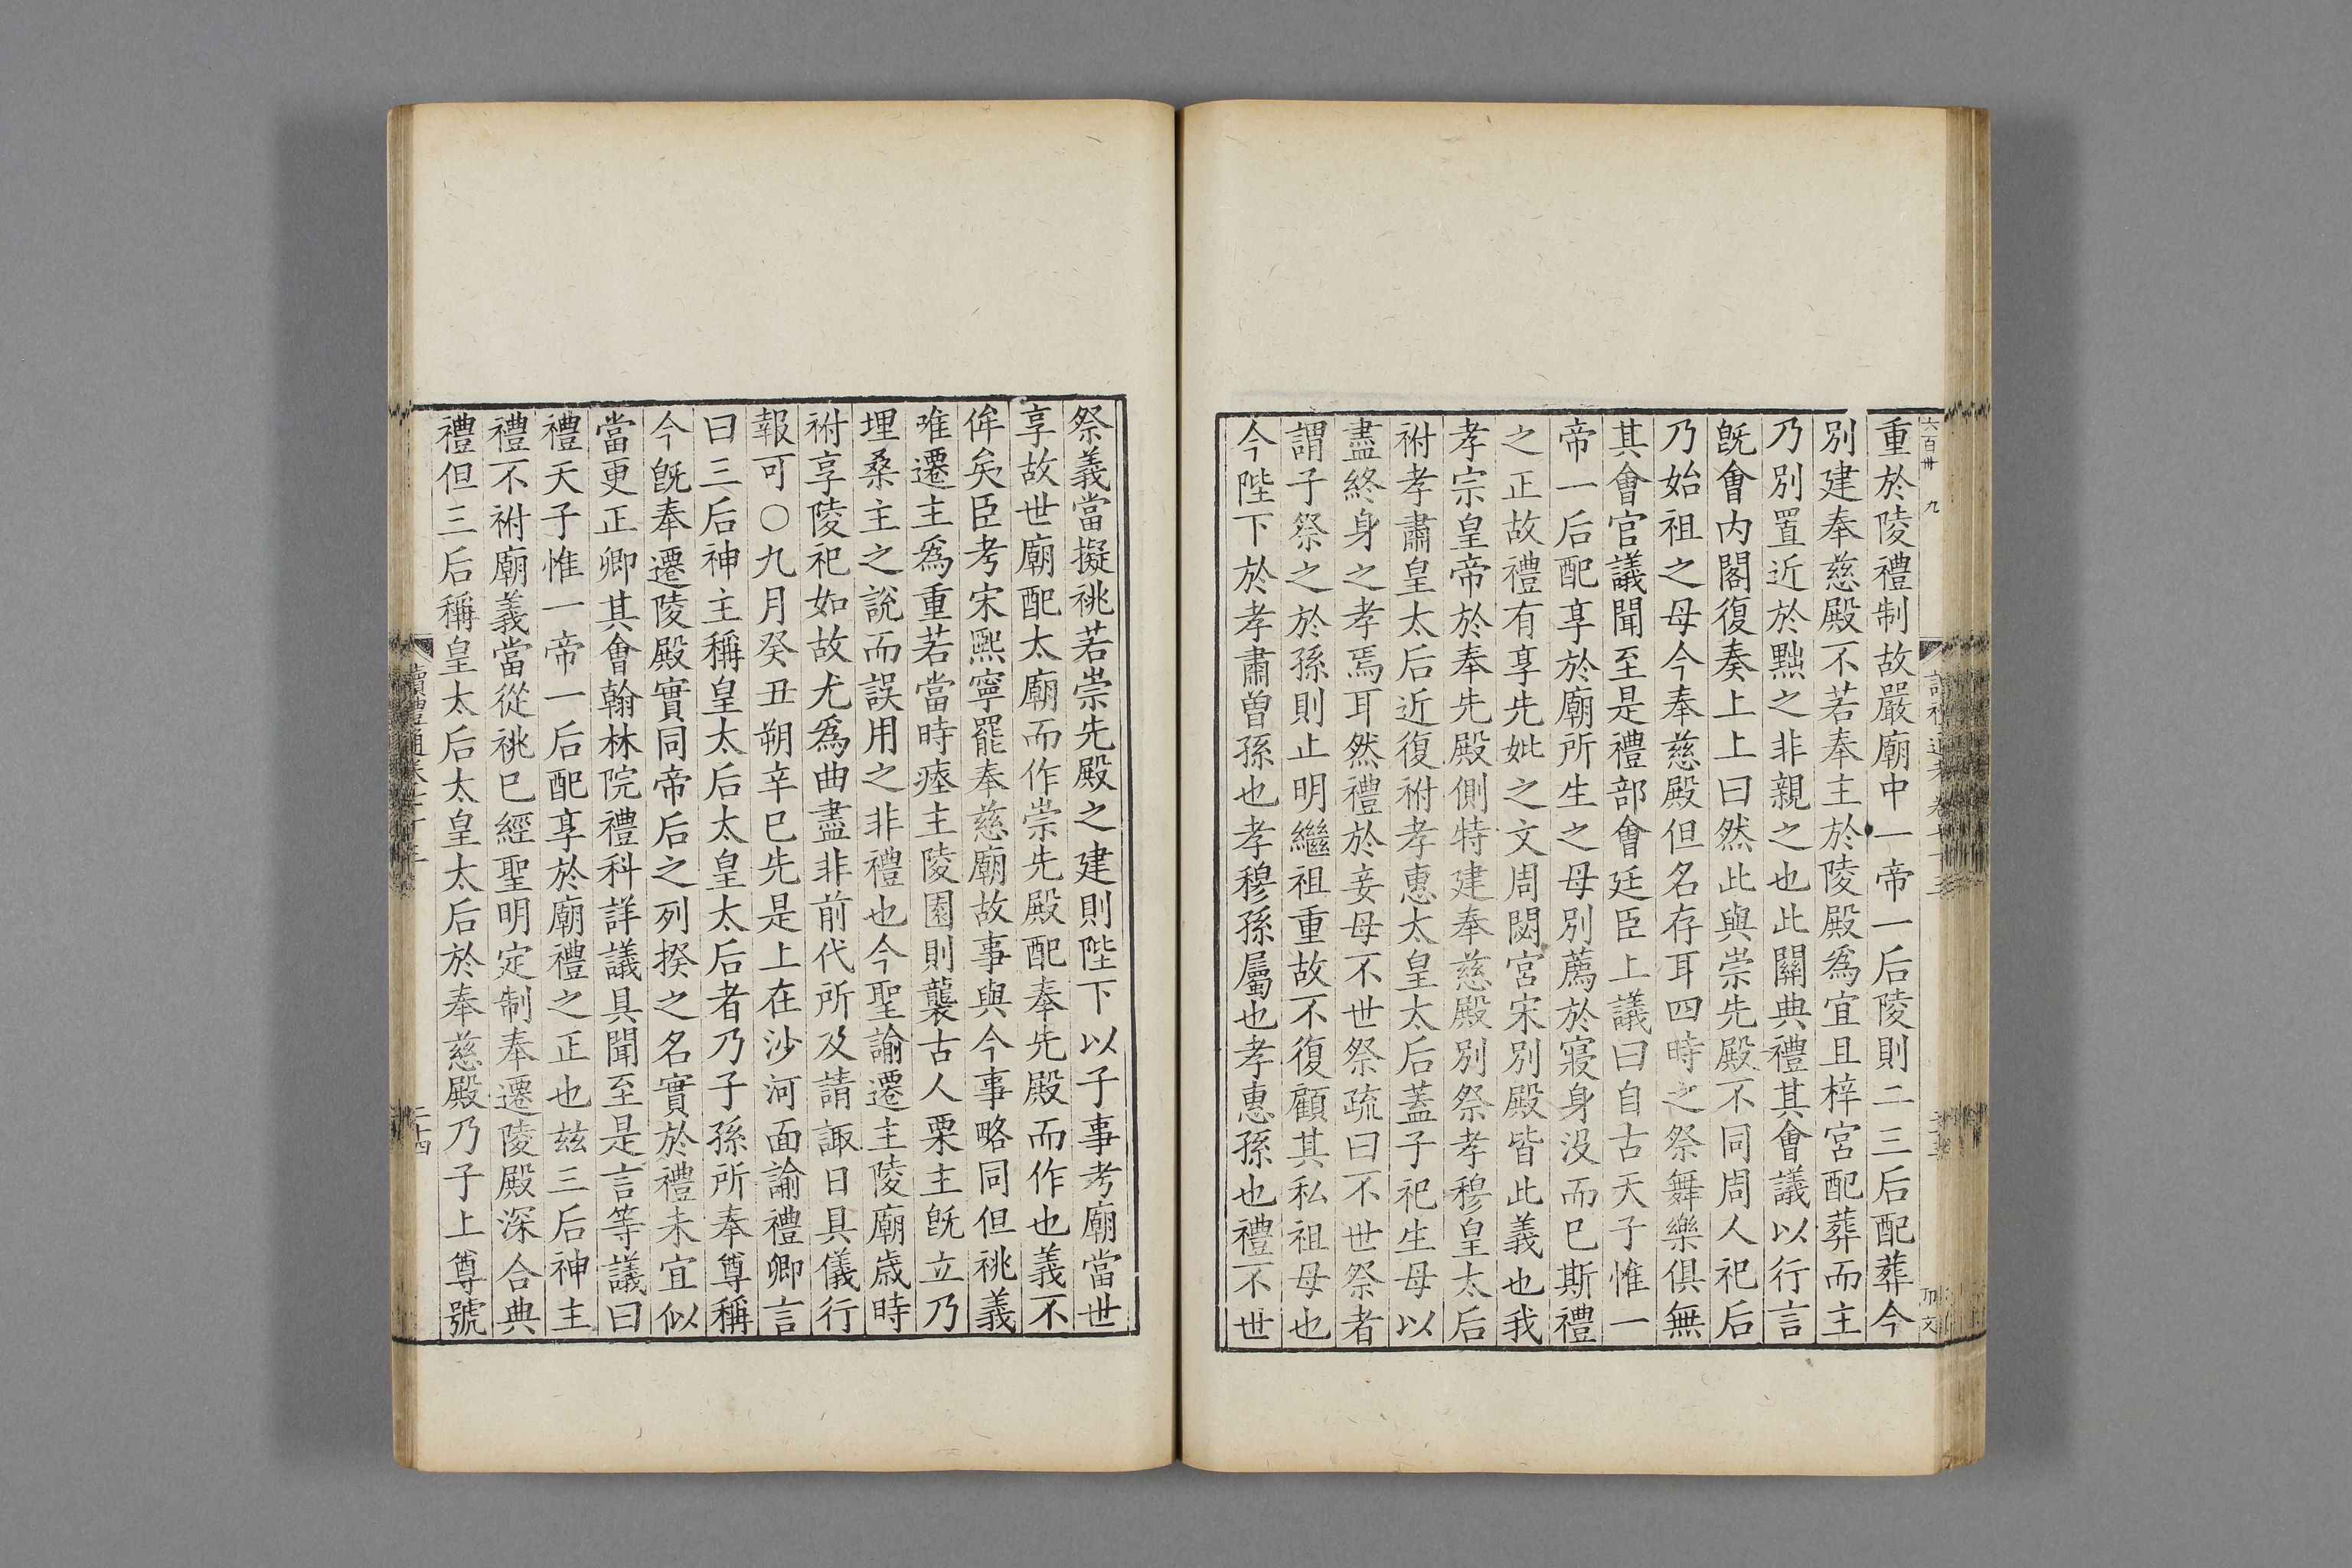 重於陵禮制故嚴廟中一帝一后陵則二三后配葬今
別建奉慈殿不若奉主於陵殿爲宜且梓宮配葬而主
乃別置近於黜之非親之也此關典禮其會議以行言
旣會内閣復奏上上曰然此與崇先殿不同周人祀后
乃始祖之母今奉慈殿但名存耳四時之祭舞樂俱無
其會官議聞至是禮部會廷臣上議曰自古天子惟一
帝一后配享於廟所生之母別薦於寢身没而巳斯禮
之正故禮有享先妣之文周閟宮宋別殿皆此義也我
孝宗皇帝於奉先殿側特建奉慈殿別祭孝穆皇太后
祔孝肅皇太后近復祔孝惠太皇太后蓋子祀生母以
盡終身之孝焉耳然禮於妾母不世祭疏曰不世祭者
謂子祭之於孫則止明繼祖重故不復顧其私祖母也
今陛下於孝肅曽孫也孝穆孫屬也孝惠孫也禮不世
祭義當擬祧若崇先殿之建則陛下以子事考廟當世
享故世廟配太廟而作崇先殿配奉先殿而作也義不
侔矣臣考宋熙寧罷奉慈廟故事與今事略同但祧義
唯遷主爲重若當時瘞主陵園則襲古人栗主旣立乃
埋桑主之說而誤用之非禮也今聖諭遷主陵廟歲時
祔享陵祀如故尤爲曲盡非前代所及請諏日具儀行
報可〇九月癸丑朔辛巳先是上在沙河面諭禮卿言
曰三后神主稱皇太后太皇太后者乃子孫所奉尊稱
今旣奉遷陵殿實同帝后之列揆之名實於禮未宜似
當更正卿其會翰林院禮科詳議具聞至是言等議曰
禮天子惟一帝一后配享於廟禮之正也玆三后神主
禮不祔廟義當從祧巳經聖明定制奉遷陵殿深合典
禮但三后稱皇太后太皇太后於奉慈殿乃子上尊號
二十四